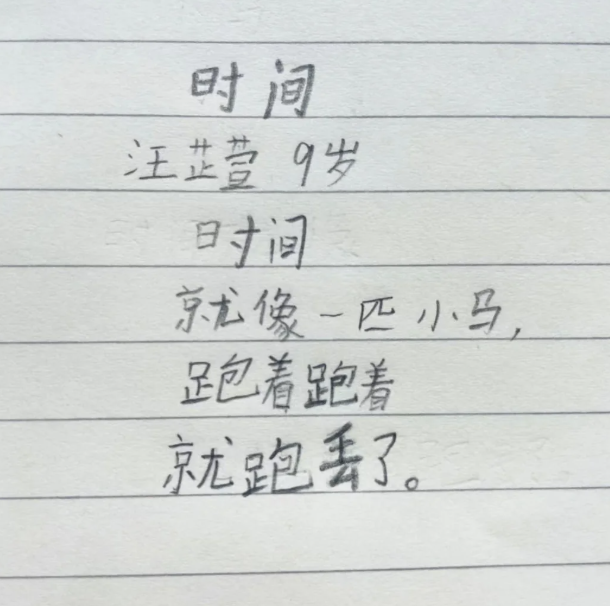 时间
汪芷萱 9岁
时间
就像一匹小马,
跑着跑着
就跑丢了。